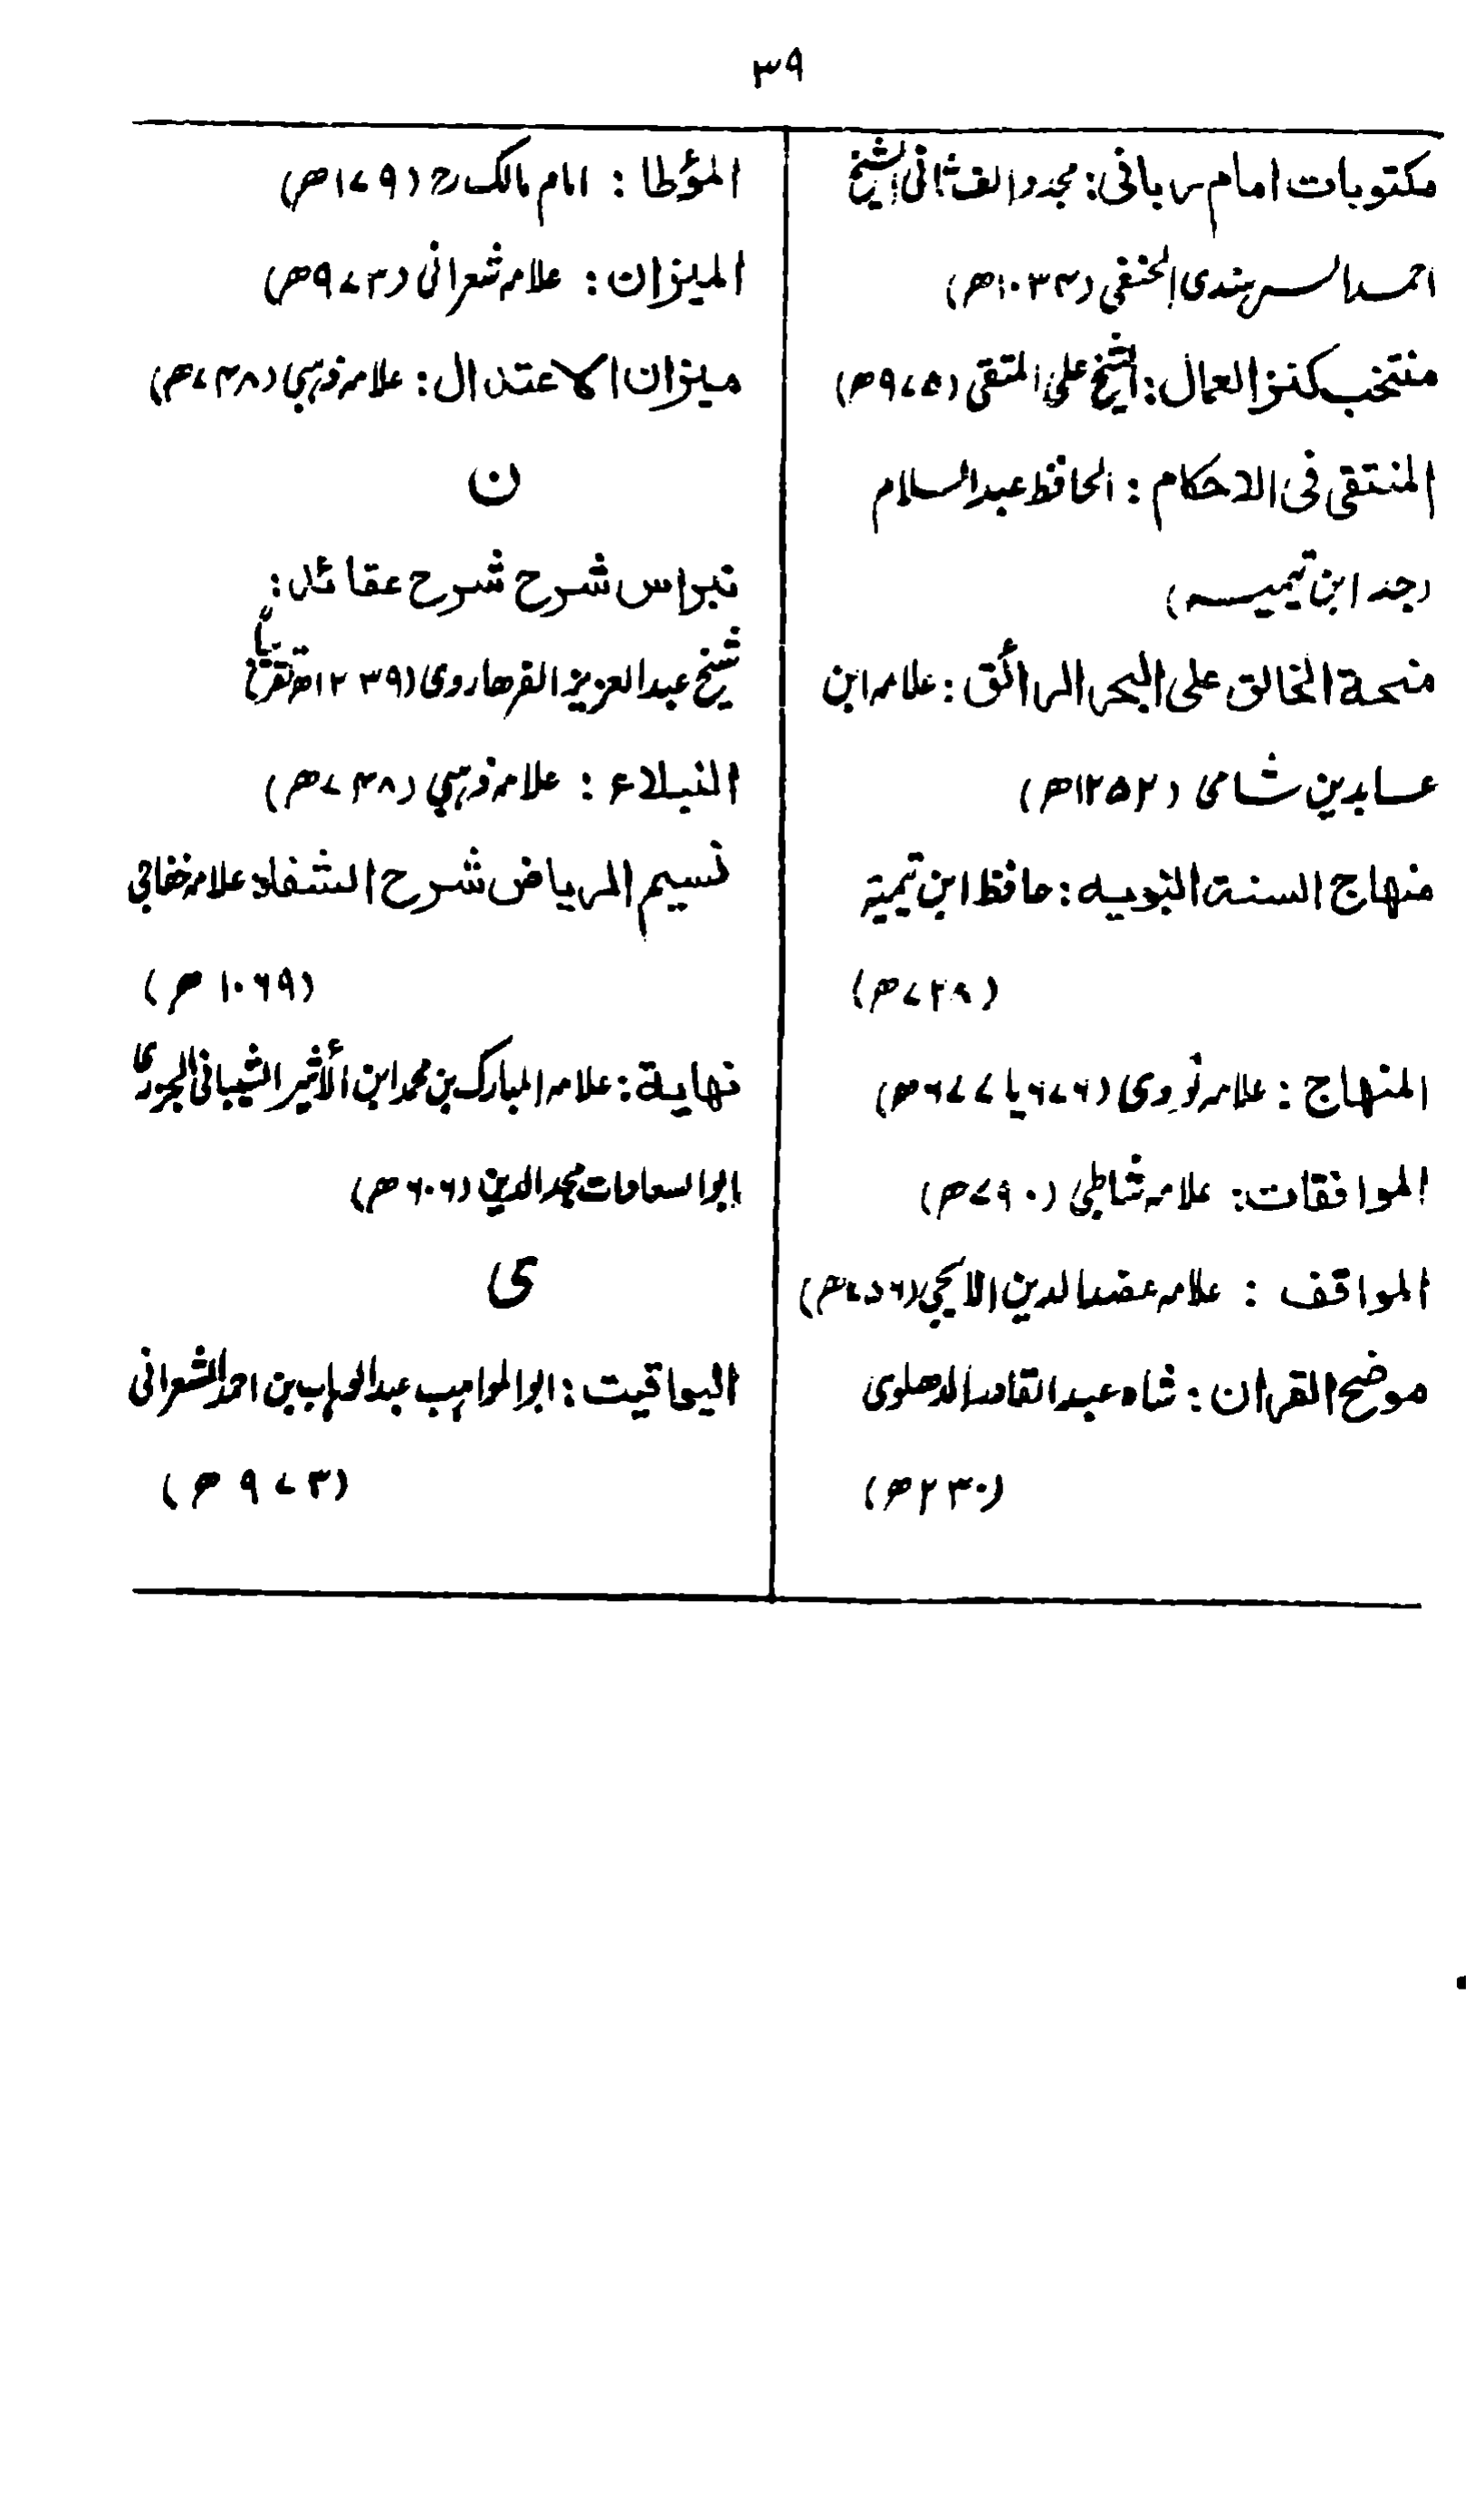 ۳۹
مکتوبات امام ربانی: مجدد الف ثانی الشیخ
احمد السرہندی الحنفی (۱۰۳۴ھ)
منتخب کنز العمال: الشیخ علی المتقی (۹۷۵ھ)
المنتقی فی الاحکام: الحافظ عبدالسلام
(جد ابن تیمیہ)
منحة الخالق علی البحر الرائق: علامہ ابن
عابدین شامی (۱۲۵۲ھ)
منهاج السنة النبویه: حافظ ابن تیمیة
(۷۲۸ھ)
المنهاج: علامہ نووی (۶۷۶ یا ۶۷۷ھ)
الموافقات: علامہ شاطبی (۷۹۰ھ)
المواقف: علامہ عضد الدین الایجی (۷۵۶ھ)
موضح القرآن: شاہ عبدالقادر الدھلوی
(۲۳۰ھ)
المؤطا: امام مالکؒ (۱۷۹ھ)
المیزان: علامہ شعرانی (۹۷۳ھ)
میزان الاعتدال: علامہ ذہبی (۷۴۸ھ)
ن
نبراس شرح شرح عقائد:
شیخ عبدالعزیز الفرھاروی (۱۲۳۹ھ تقریباً)
النبلاء: علامہ ذہبی (۷۴۸ھ)
نسیم الریاض شرح الشفاء: علامہ خفاجی
(۱۰۶۹ھ)
نهایة: علامہ المبارک بن محمد ابن الأثیر الشیبانی الجزری
ابو السعادات مجد الدین (۶۰۶ھ)
ی
الیواقیت: ابو المواہب عبدالوہاب بن احمد الشعرانی
(۹۷۳ھ)